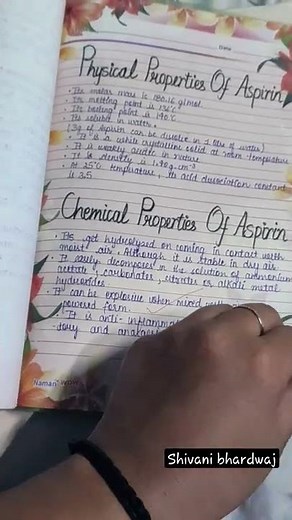 Date
Physical Properties Of Aspirin
• Its molar mass is 180.16 g/mol.
• Its melting point is 136°C
• Its boiling point is 140°C
• Its soluble in water.
(3g of aspirin can be dissolve in 1 litre of water)
• It is a white crystalline solid at room temperature
• It is weakly acidic in nature
• It is density is 1.40 g.cm⁻³
• At 25°C temperature, its acid dissociation constant
is 3.5
Chemical Properties Of Aspirin
• Its got hydrolysed on coming in contact with
moist air, Although it is stable in dry air.
• It easily decomposes in the solution of ammonium
acetate, carbonates, citrates or alkali metal
hydroxides.
• It can be explosive when mixed
powered form.
• It is anti-inflamm
-tory and
Naman
Shivani bhardwaj